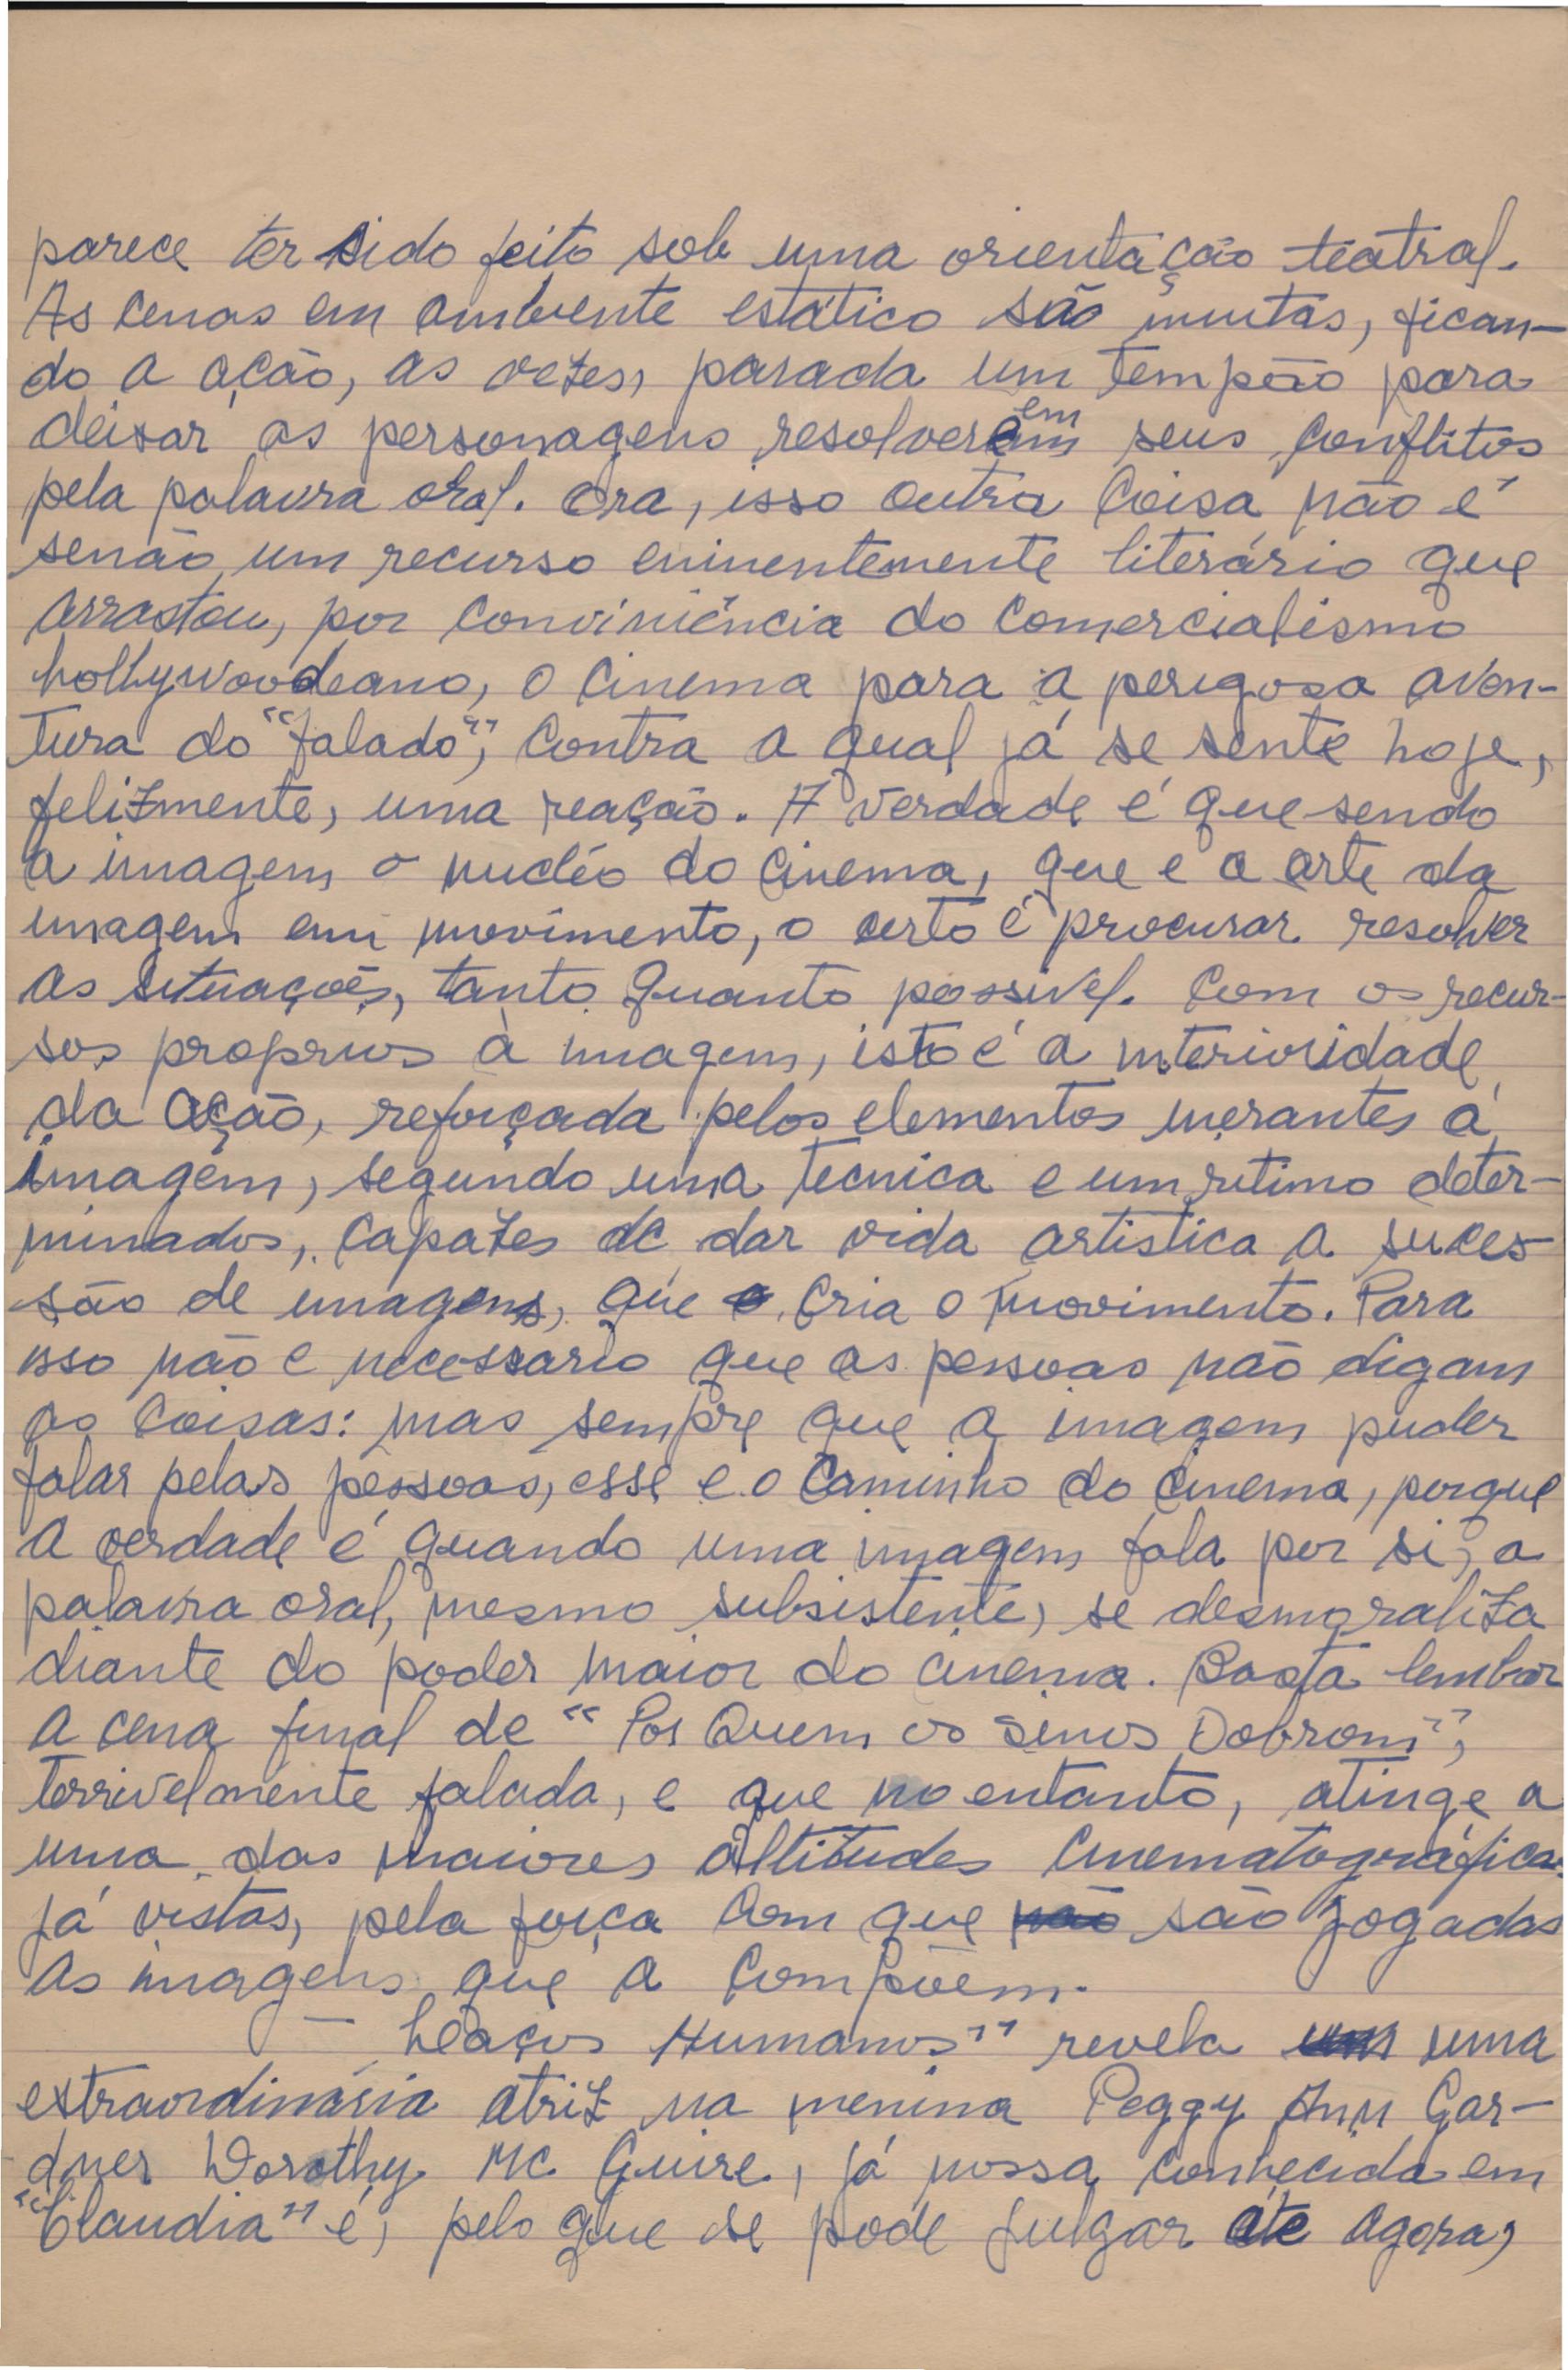 parece ter sido feito sob uma orientação teatral.
As cenas em ambiente estático são muitas, fican-
do a ação, as vezes, parada um tempão para
deixar as personagens resolverem seus conflitos
pela palavra oral. Ora, isso outra coisa não é
senão um recurso eminentemente literário que
arrastou, por conviniência do comercialismo
hollywoodeano, o cinema para a perigosa aven-
tura do "falado", contra a qual já se sente hoje,
felizmente, uma reação. A verdade é que sendo
a imagem o nucléo do cinema, que e a arte da
imagem em movimento, o certo é procurar resolver
as situações, tanto quanto possivel. Com os recur-
sos proprios à imagem, isto é a interioridade
da ação, reforçada pelos elementos inerantes á
imagem, segundo uma tecnica e um ritimo deter-
minados, capazes de dar vida artistica a suces-
são de imagens, que cria o movimento. Para
isso não e necessario que as pessoas não digam
as coisas: mas sempre que a imagem puder
falar pelas pessoas, esse e o caminho do cinema, porque
a verdade é quando uma imagem fala por si, a
palavra oral, mesmo subsistente, se desmoraliza
diante do poder maior do cinema. Basta lembrar
a cena final de "Por Quem os Sinos Dobram",
terrivelmente falada, e que no entanto, atinge a
uma das maiores altitudes cinematográficas
já vistas, pela força com que não são jogadas
as imagens que a compõem.
— Leaços Humanos" revela um uma
extraordinária atriz na menina Peggy Ann Gar-
dner Dorothy Mc Guire, já nossa conhecida em
"Claudia" é, pelo que se pode julgar até agora,